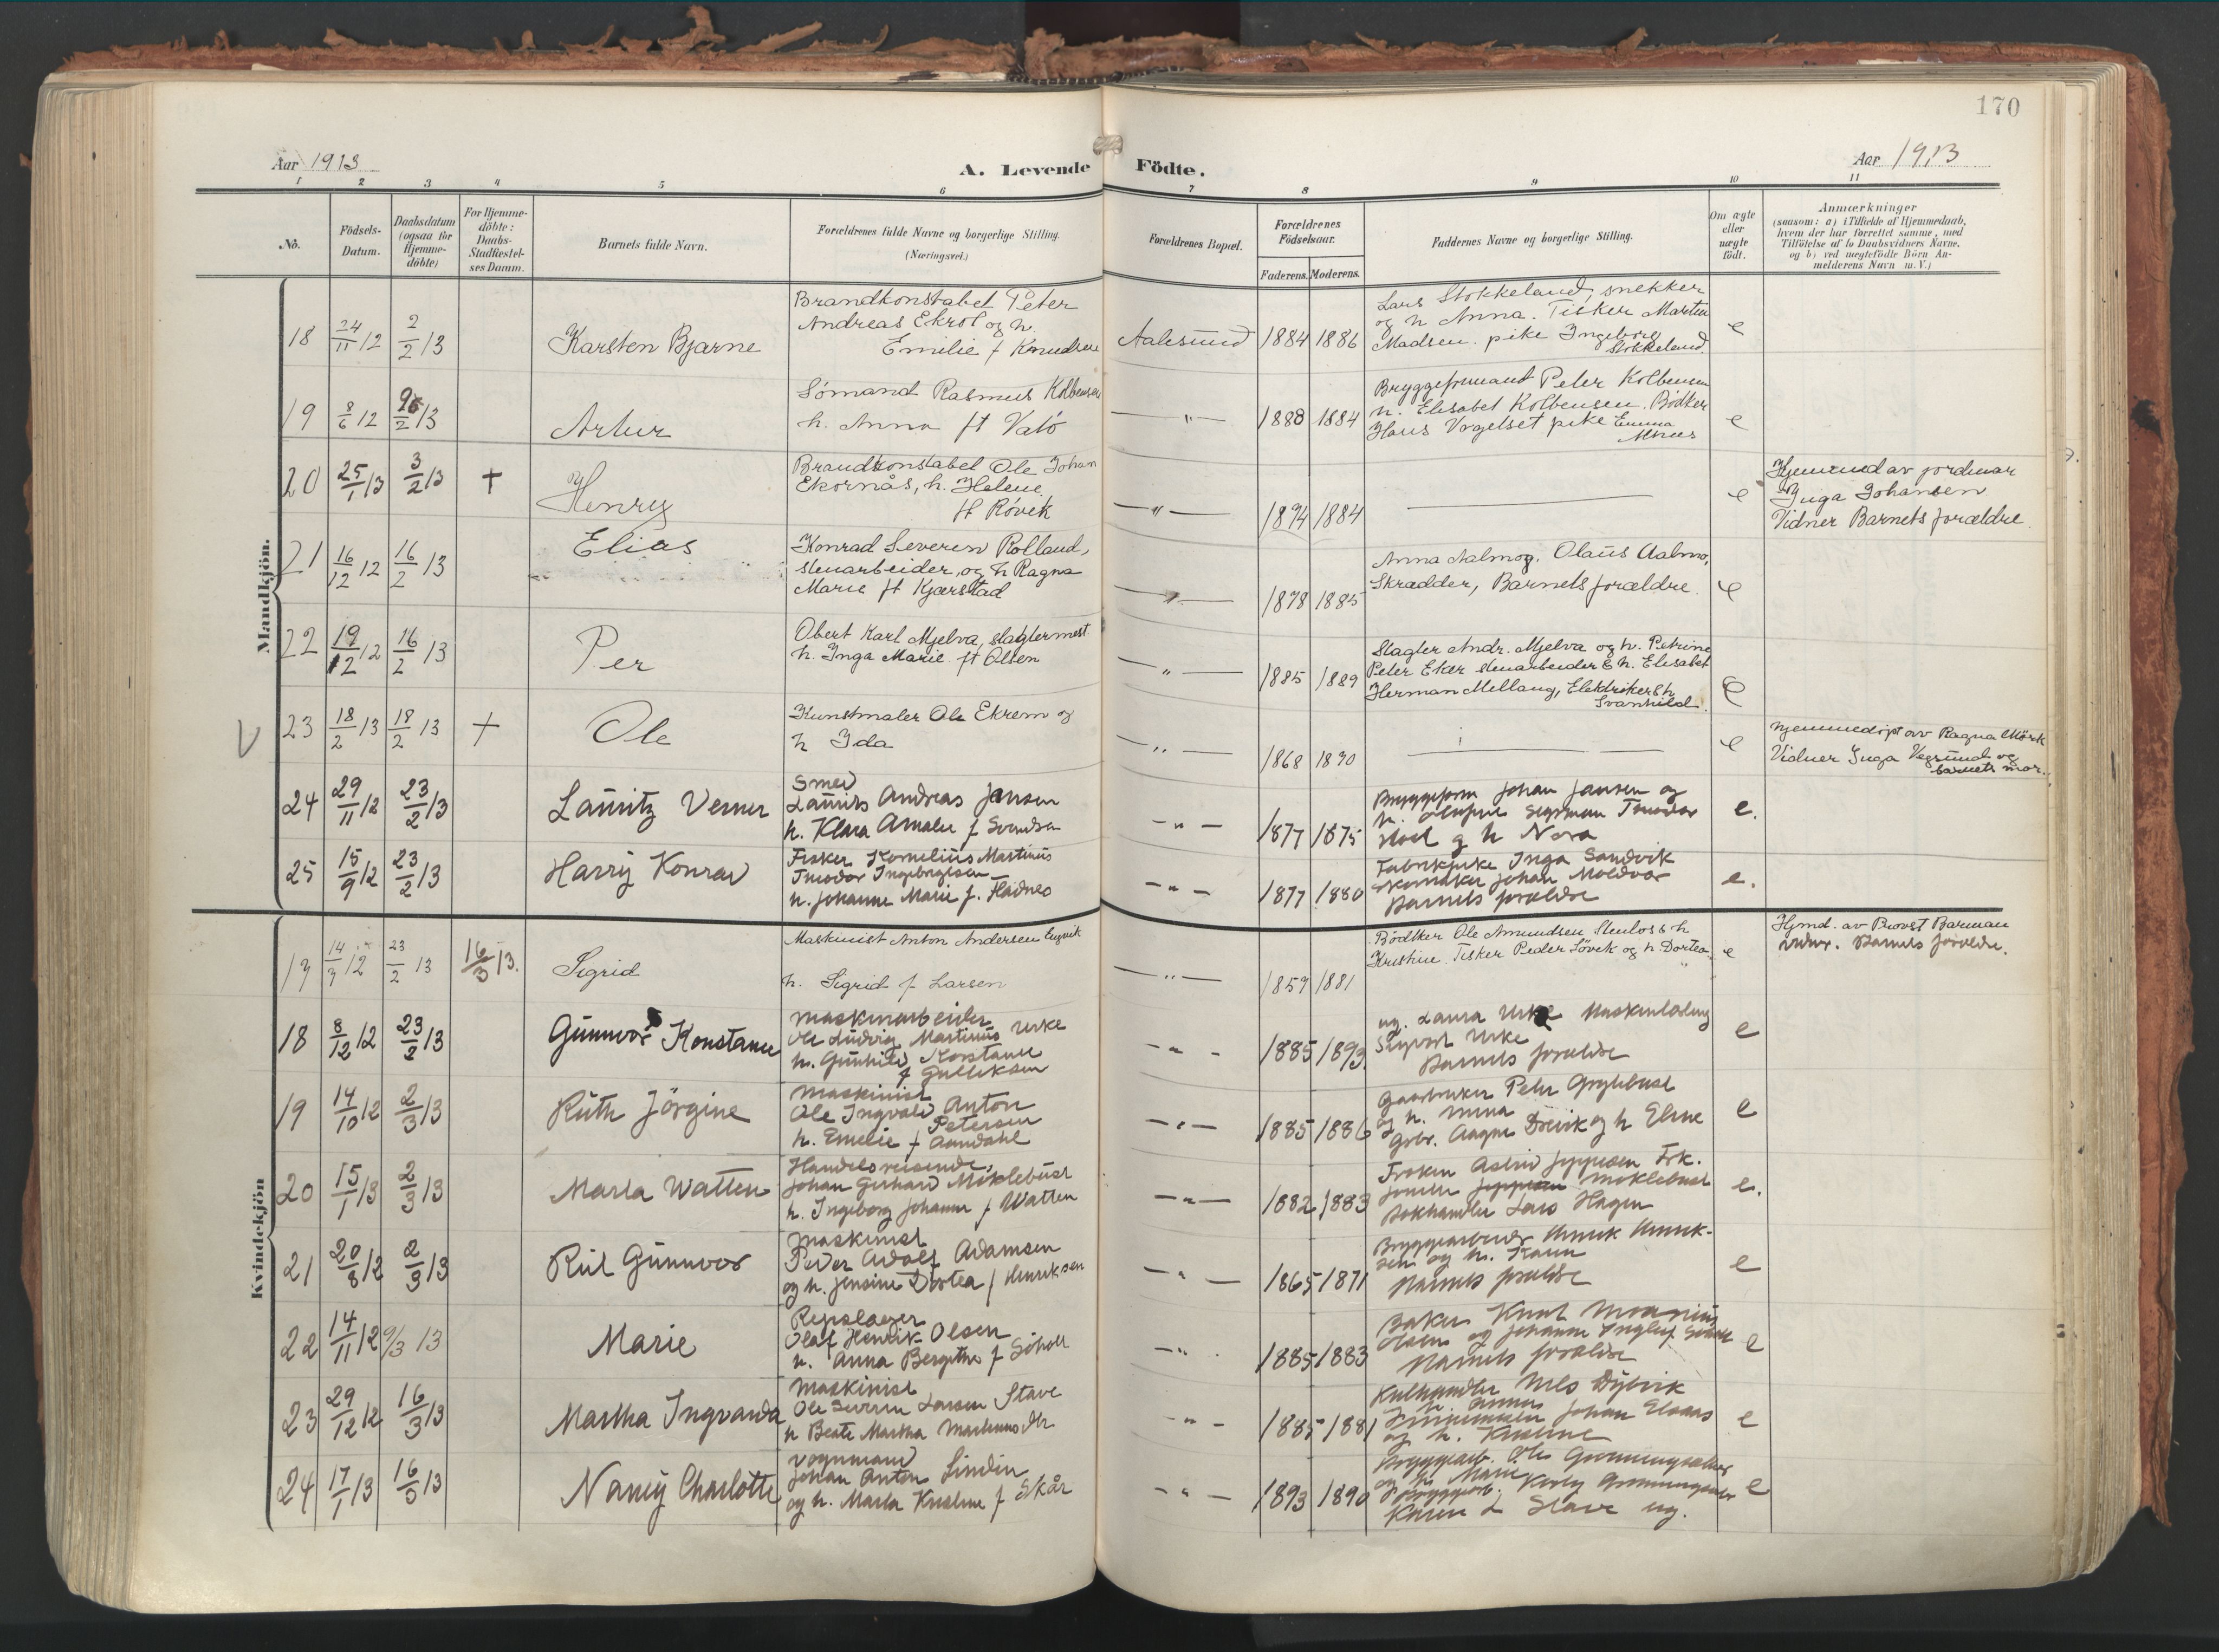 170
Aar 1913
A. Levende Födte.
Aar 1913
1 2 3 4 5 6 7 8 9 10 11
No.
Födsels-
Datum.
Daabsdatum
(ogsaa for
Hjemme-
döbte)
For Hjemme-
döbte:
Daabs-
Stadfæstel-
ses Datum.
Barnets fulde Navn.
Forældrenes fulde Navne og borgerlige Stilling.
(Næringsvei.)
Forældrenes Bopæl.
Forældrenes
Födselsaar.
Faderens. Moderens.
Faddernes Navne og borgerlige Stilling.
Om ægte
eller
uægte
født.
Anmærkninger
(saasom: a) i Tilfælde af Hjemmedaab,
hvem der har forrettet samme, med
Tilföielse af to Daabsvidners Navne,
og b) ved uægtefödte Börn An-
melderens Navn m. V.)
Mandkjön.
18 24/11 12 2/2 13 Karsten Bjarne
Brandkonstabel Peter
Andreas Ekrol og h.
Emilie f Knudsen
Aalesund 1884 1886
Lars Stokkeland, snekker
og h Anna. Fisker Martin
Madsen. pike Ingeborg
Stokkeland.
e
19 8/6 12 9/2 13 Artur
Sömand Rasmus Kolbensen
h. Anna ft Vatö
— " — 1888 1884
Bryggeformand Peter Kolbensen
h. Elisabet Kolbensen. Bödker
Hans Vagelset pike Emma
e
20 25/1 13 3/2 13 + Henry
Brandkonstabel Ole Johan
Ekornås, h. Helene
ft Rövik
— " — 1894 1884
e
Hjemmed av jordmor
Inga Johansen
Vidner Barnets forældre
21 16/12 12 16/2 13 Elias
Konrad Severin Rolland,
stenarbeider, og h Ragna
Marie ft Kjærstad
— " — 1878 1885
Anna Aalmo og Olaus Aalmo,
Skrædder, Barnets forældre.
e
22 19/12 12 16/2 13 Per
Obert Karl Mjelva, slagtermest.
h. Inga Marie ft Olsen
— " — 1885 1889
Slagter Andr. Mjelva og h. Petrine
Peter Eker stenarbeider & h. Elisabet
Herman Mellang, Elektriker & h
Svanhild.
e
V 23 18/2 13 18/2 13 + Ole
Kunstmaler Ole Ekrem og
h Ida
— " — 1868 1890
e
hjemmedöpt av Ragna Mörk
Vidner Inga Vegsund og
barnets mor.
24 29/11 12 23/2 13 Lauritz Verner
Smed
Laurits Andreas Jensen
h. Klara Amalie f Svendsen
— " — 1877 1875
Bryggeform Johan Jansen og
h.
og h Nora
e.
25 15/9 12 23/2 13 Harry Konrad
Fisker Kornelius Martinus
Teodor Ingebrigtsen
h. Johanne Marie f.
— " — 1877 1880
Fabrikpike Inga Sandvik
Skomaker Johan Moldvær
Barnets forældre
e.
Kvindekjön
13 14/3 12 23/2 13 16/3 13. Sigrid
Maskinist Anton Andersen Engvik
h. Sigrid f Larsen
— " — 1859 1881
Bödtker Ole Amundsen Stenlos & h
Kristine. Fisker Peder Lövik og h Dortea
e
Hjmd. av Provst Barman
Vidner. Barnets forældre.
18 8/12 12 23/2 13 Gunnvor Konstance
Maskinarbeider
Ole Ludvig Martinus Urke
h. Gunhild Konstance
f Gulliksen
— " — 1885 1893.
ug. Laura Urke
Sigvart Urke
Barnets forældre
e
19 14/10 12 2/3 13 Ruth Jörgine
Maskinist
Ole Ingvald Anton
Petersen
h. Emelie f Aandahl
— " — 1885 1886
Gaardbruker Peter
og h. Mina
Gbr. Aagne Dravik og h Eline
e
20 15/1 13 2/3 13 Marta Watten
Handelsreisende,
Johan Gerhard Möklebust
h. Ingeborg Johanne f Watten
— " — 1882 1883
Fröken Astrid Jeppesen Frk.
Möklebust
Bokhandler Lars Hagen
e.
21 20/8 12 2/3 13 Rut Gunnvor
Maskinist
Peder Adolf Adamsen
og h. Jensine Dortea f Henriksen
— " — 1865 1871
Bryggearbeider Henrik Henrik-
sen og h. Karen
Barnets forældre
e
22 14/11 12 9/3 13 Marie
Repslager
Olaf Henrik Olsen
h. Anna Bergitte f Söholt
— " — 1885 1883
Baker Knut
Olsen og Johanne
Barnets forældre
e
23 29/12 12 16/3 13 Martha Ingvarda
Maskinist
Ole Severin Larsen Stave
h Beate Martha Martinusdtr
— " — 1885 1881
Kulhandler Nils Dybvik
Johan
og h. Kristine
e
24 17/1 13 16/3 13 Nancy Charlotte
Vognmand
Johan Anton Lindin
og h. Marta Kristine f Skår
— " — 1893 1890
Bryggearb. Ole Grönningsæter
og h. Marie
Karen L Stave ug.
e